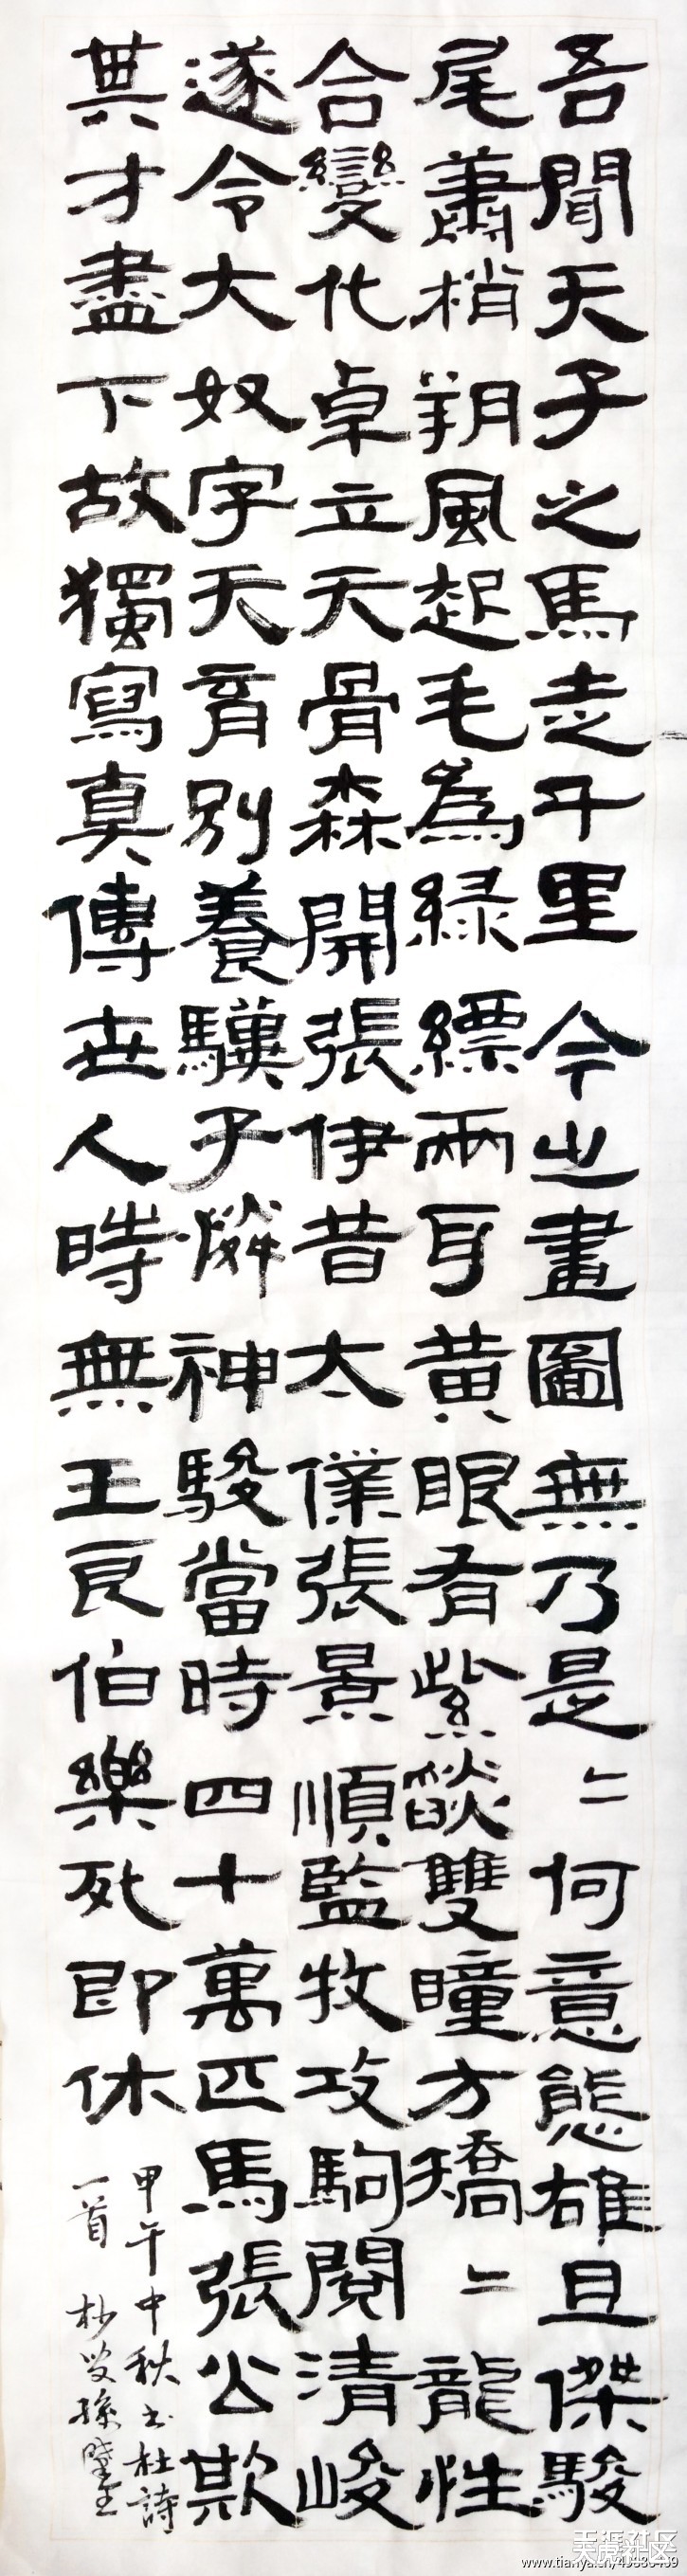 吾聞天子之馬走千里今之畫圖無乃是二何意態雄且傑駿
尾蕭梢朔風起毛為緑縹兩耳黃眼有紫燄雙瞳方矯二龍性
合變化卓立天骨森開張伊昔太僕張景順監牧攻駒閱清峻
遂令大奴字天育別養驥子憐神駿當時四十萬匹馬張公歎
其才盡下故獨寫真傳世人時無王良伯樂死即休
甲午中秋书杜詩
一首 孫
天涯社区